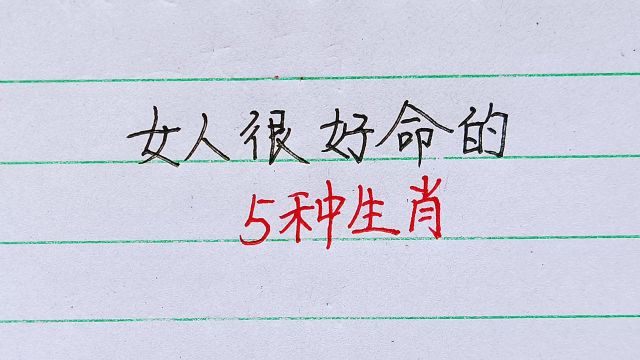 女人很好命的
5种生肖